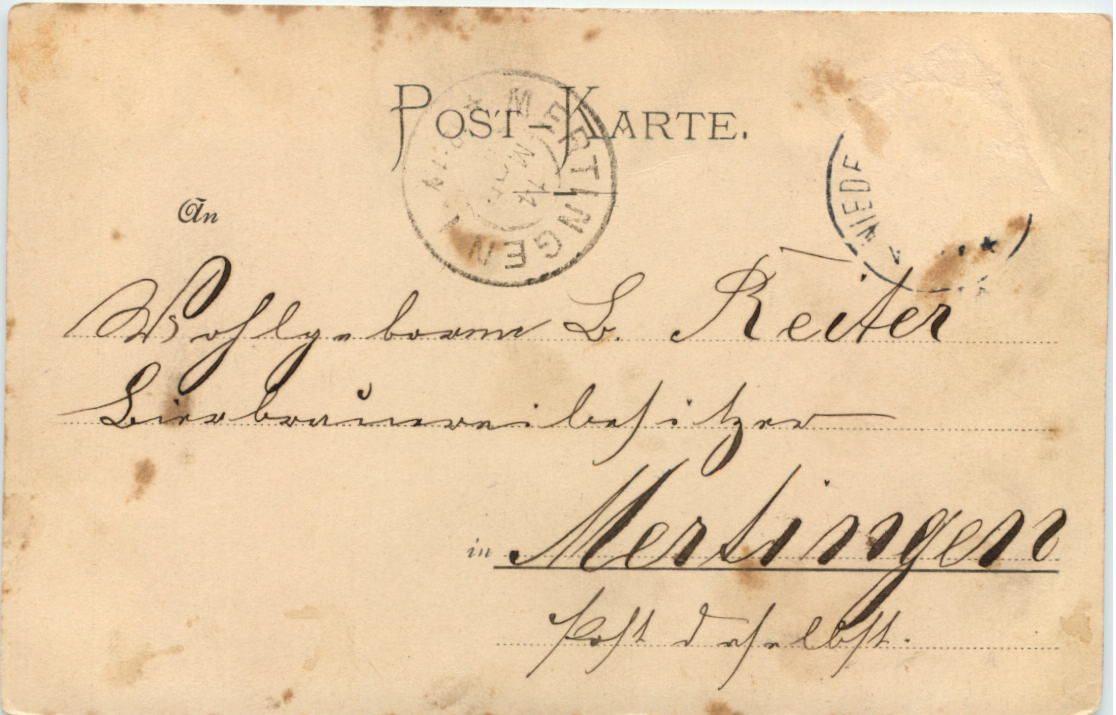 POST-KARTE.
MERTINGEN
14
WIEDE
An
Wohlgeboren L. Reiter
Bierbrauereibesitzer
in Mertingen
Post daselbst.